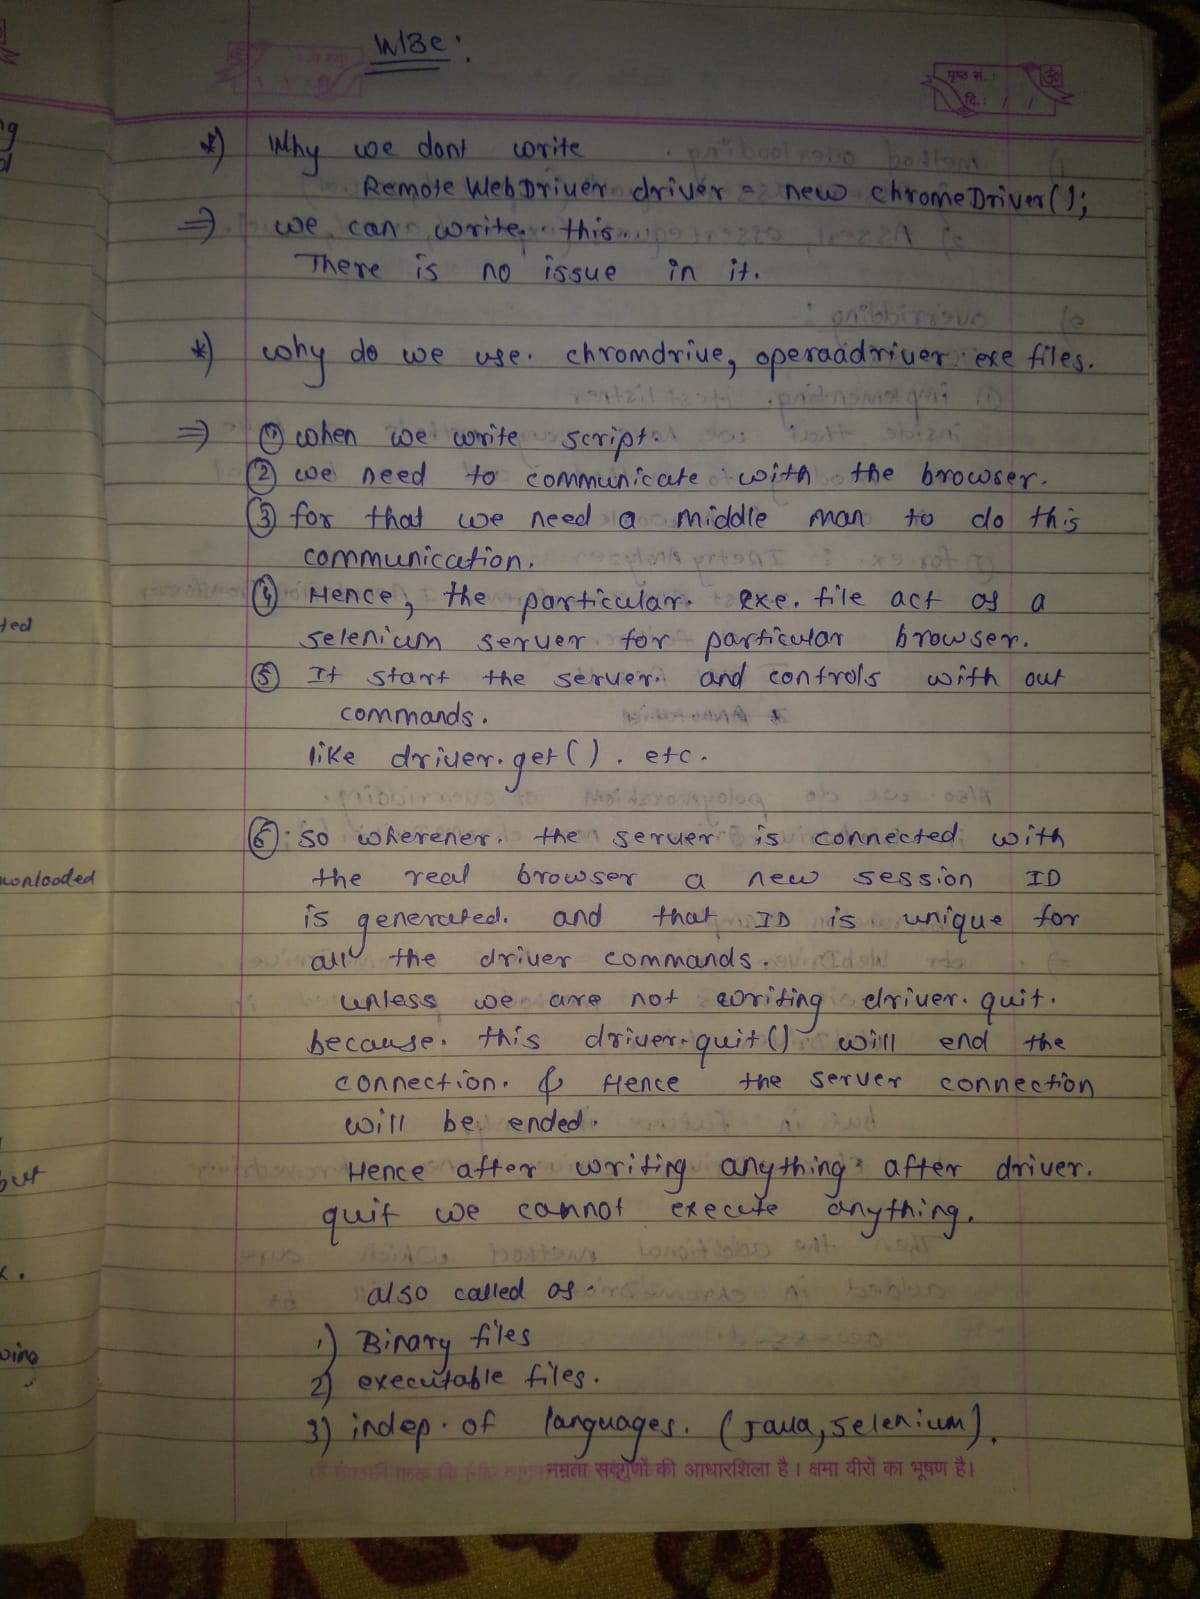 W3c:
पृष्ठ सं.:
दि.: / /
*) Why we dont write
Remote WebDriver driver = new chromeDriver();
=> we can write this.
There is no issue in it.
*) why do we use. chromdrive, operaadriver exe files.
=> ① when we write script.
② we need to communicate with the browser.
③ for that we need a middle man to do this
communication.
④ Hence, the particular. exe. file act as a
selenium server for particular browser.
⑤ It start the server. and controls with out
commands.
like driver.get(). etc.
⑥ : so wherener. the server is connected with
the real browser a new session ID
is generated. and that ID is unique for
all the driver commands.
unless we are not writing driver. quit.
because. this driver.quit() will end the
connection. & Hence the server connection
will be ended.
Hence after writing anything after driver.
quit we cannot execute anything.
also called as.
1) Binary files
2) executable files.
3) indep. of languages. (Java, selenium).
नम्रता सद्गुणों की आधारशिला है। क्षमा वीरों का भूषण है।
ted
but